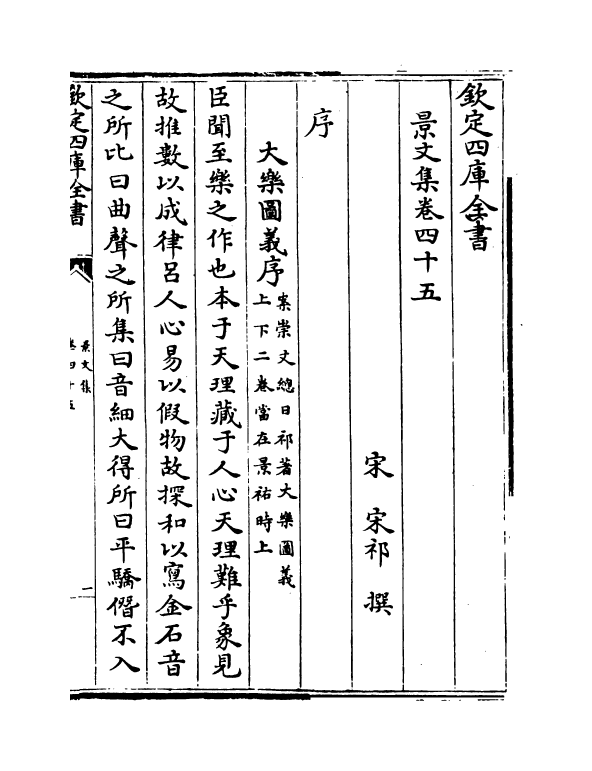 欽定四庫全書
景文集卷四十五
宋 宋祁 撰
序
大樂圖義序
案崇文總目祁著大樂圖義
上下二卷當在景祐時上
臣聞至樂之作也本于天理藏于人心天理難乎象見
故推數以成律呂人心易以假物故探和以寫金石音
之所比曰曲聲之所集曰音細大得所曰平驕僭不入
欽定四庫全書
景文集
卷四十五
一